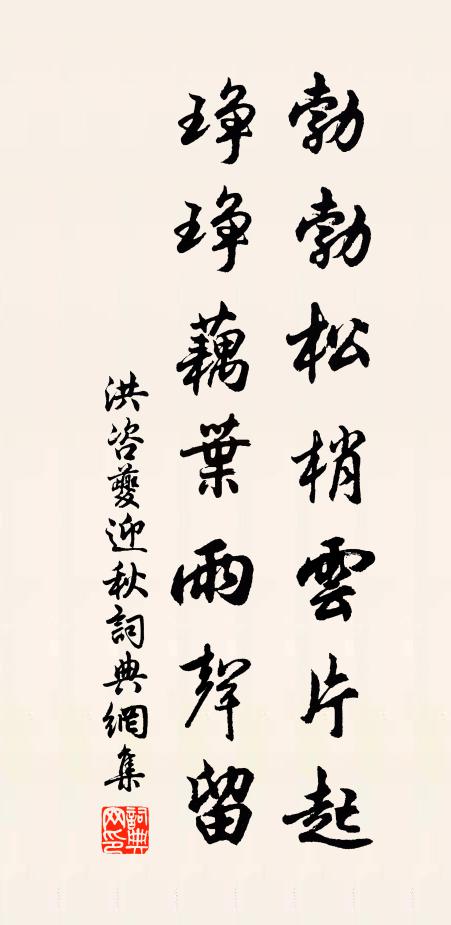 勃勃松梢雲片起
琤琤藕葉雨聲留
洪咨夔迎秋詞典網集
詞典網印